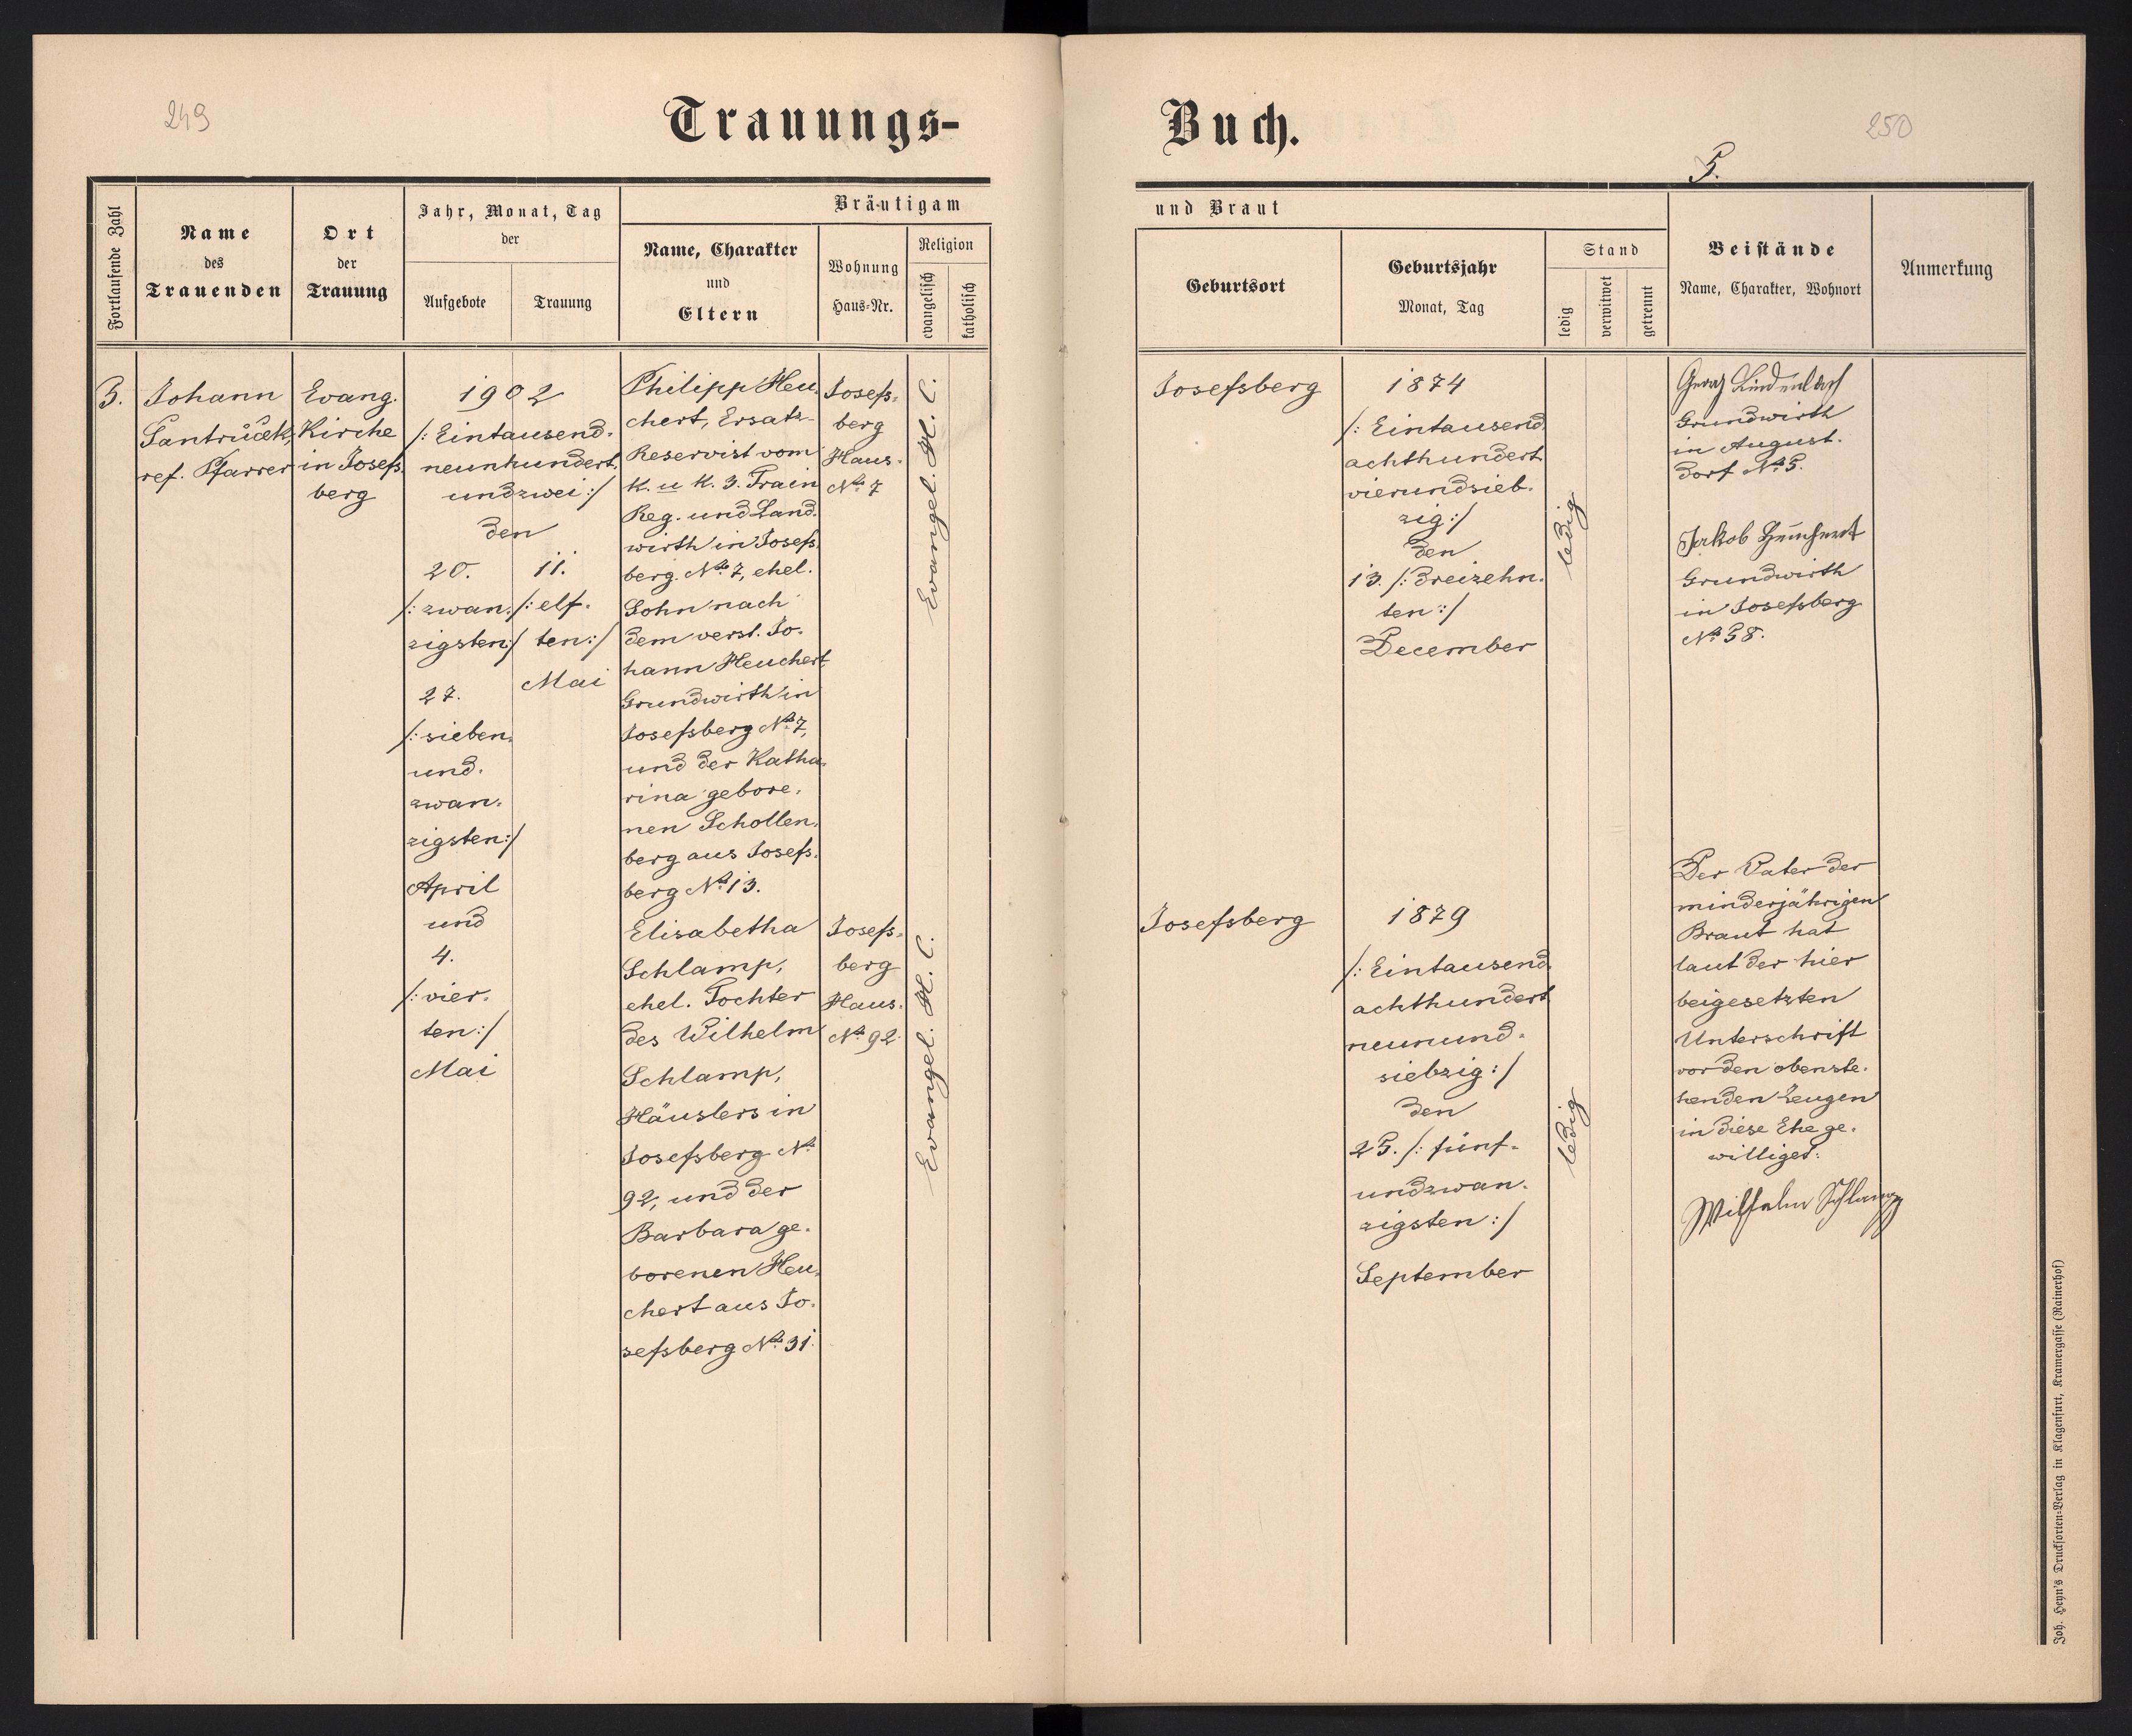 249
Trauungs-
Fortlaufende Zahl
Name
des
Trauenden
Ort
der
Trauung
Jahr, Monat, Tag
der
Aufgebote
Trauung
Bräutigam
Name, Charakter
und
Eltern
Wohnung
Haus-Nr.
Religion
evangelisch
katholisch
3.
Johann
Santrůček,
ref. Pfarrer
Evang.
Kirche
in Josefs-
berg
1902
/: Eintausend-
neunhundert
undzwei :/
den
20.
/: zwan-
zigsten :/
27.
/: sieben-
und-
zwan-
zigsten :/
April
und
4.
/: vier-
ten :/
Mai
11.
/: elf-
ten :/
Mai
Philipp Heu-
chert, Ersatz-
Reservist vom
k. u k. 3. Train
Reg. und Land-
wirth in Josefs-
berg No 7, ehel.
Sohn nach
dem verst. Jo-
hann Heuchert,
Grundwirth in
Josefsberg No 7,
und der Katha-
rina gebore-
nen Schollen-
berg aus Josefs-
berg No 13.
Josefs-
berg
Haus-
No 7
Evangel. H. C.
Elisabetha
Schlamp,
ehel. Tochter
des Wilhelm
Schlamp,
Häuslers in
Josefsberg No
92, und der
Barbara ge-
borenen Heu-
chert aus Jo-
sefsberg No 31.
Josefs-
berg
Haus-
No 92
Evangel. H. C.
Buch.
250
5.
und Braut
Geburtsort
Geburtsjahr
Monat, Tag
Stand
ledig
verwitwet
getrennt
Beistände
Name, Charakter, Wohnort
Anmerkung
Josefsberg
1874
/: Eintausend-
achthundert
vierundsieb-
zig :/
den
13. /: dreizehn-
ten :/
December
ledig
Lindenbach
Grundwirth
in August-
dorf No 5.
Jakob Heuchert
Grundwirth
in Josefsberg
No 38.
Josefsberg
1879
/: Eintausend-
achthundert
neunund-
siebzig :/
den
25. /: fünf-
undzwan-
zigsten :/
September
ledig
Der Vater der
minderjährigen
Braut hat
laut der hier
beigesetzten
Unterschrift
vor den obenste-
henden Zeugen
in diese Ehe ge-
williget:
Wilhelm Schlamp
Joh. Heyn's Drucksorten-Verlag in Klagenfurt, Kramergasse (Rainerhof)